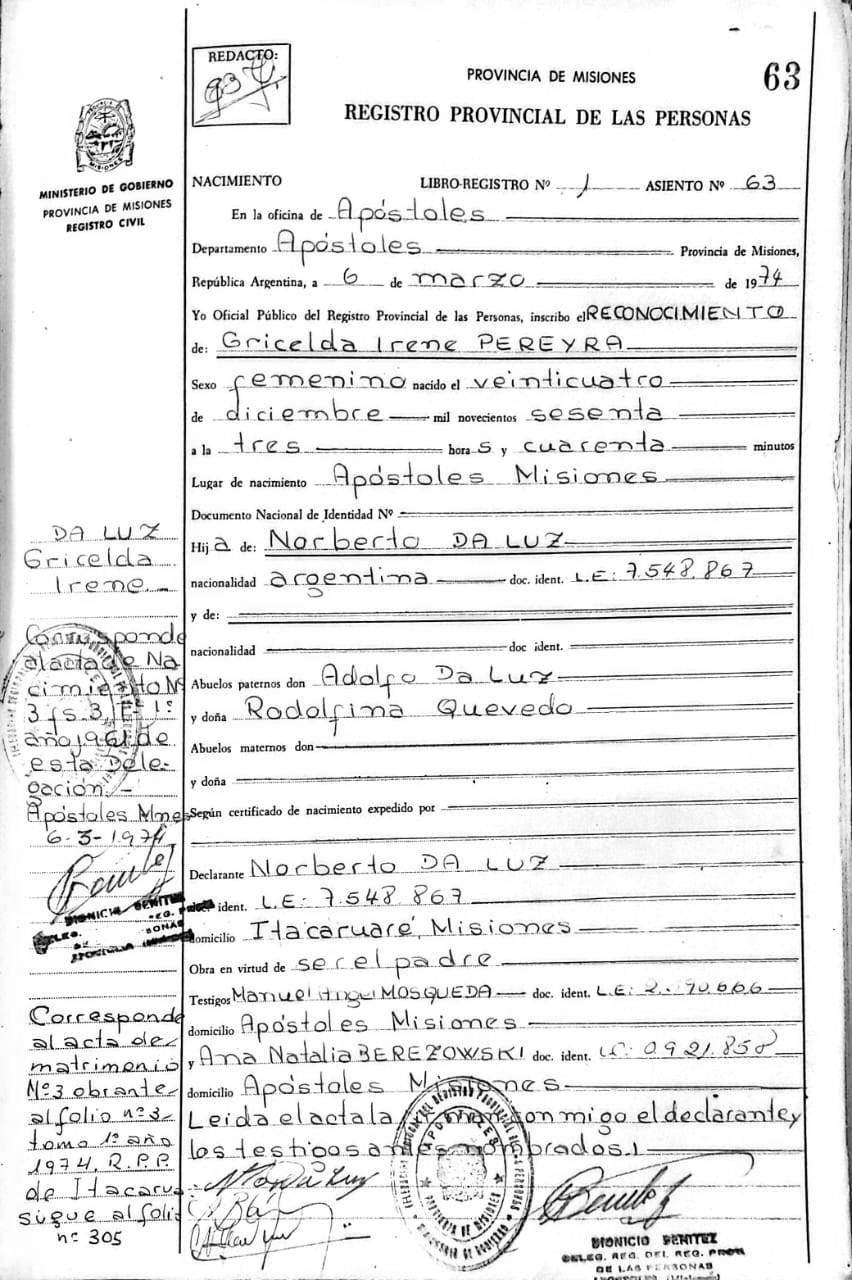 REDACTO:
PROVINCIA DE MISIONES
63
REGISTRO PROVINCIAL DE LAS PERSONAS
MISIONES
MINISTERIO DE GOBIERNO
PROVINCIA DE MISIONES
REGISTRO CIVIL
NACIMIENTO LIBRO-REGISTRO Nº 1 ASIENTO Nº 63
En la oficina de Apóstoles
Departamento Apóstoles Provincia de Misiones,
República Argentina, a 6 de marzo de 1974
Yo Oficial Público del Registro Provincial de las Personas, inscribo el RECONOCIMIENTO
de: Gricelda Irene PEREYRA
Sexo femenino nacido el veinticuatro
de diciembre mil novecientos sesenta
a la tres hora s y cuarenta minutos
Lugar de nacimiento Apóstoles Misiones
Documento Nacional de Identidad Nº
Hij a de: Norberto DA LUZ
nacionalidad argentina doc. ident. L.E: 7.548.867
y de:
nacionalidad doc ident.
Abuelos paternos don Adolfo Da Luz
y doña Rodolfina Quevedo
Abuelos maternos don
y doña
Según certificado de nacimiento expedido por
Declarante Norberto DA LUZ
ident. L.E: 7.548.867
domicilio Itacaruaré, Misiones
Obra en virtud de ser el padre
Testigos Manuel MOSQUEDA doc. ident. L.E:
domicilio Apóstoles Misiones
y Ana Natalia BEREZOWSKI doc. ident. 0.921.858
domicilio Apóstoles Misiones
Leída el acta la conmigo el declarante y
los testigos antes nombrados.
DA LUZ
Gricelda
Irene
Corresponde
al acta de Na
cimiento Nº
3 fs. 3, Tº 1º
año 1961 de
esta Dele-
gación.-
Apóstoles Mnes
6-3-1974
DIONICIO BENITEZ
Corresponde
al acta de
matrimonio
Nº 3 obrante
al folio nº 3
tomo 1º año
1974, R.P.P.
de Itacarua
sigue al folio
nº 305
APOSTOLES
PROVINCIA DE MISIONES
DIONICIO BENITEZ
DELEG. REG. DEL REG. PROV.
DE LAS PERSONAS